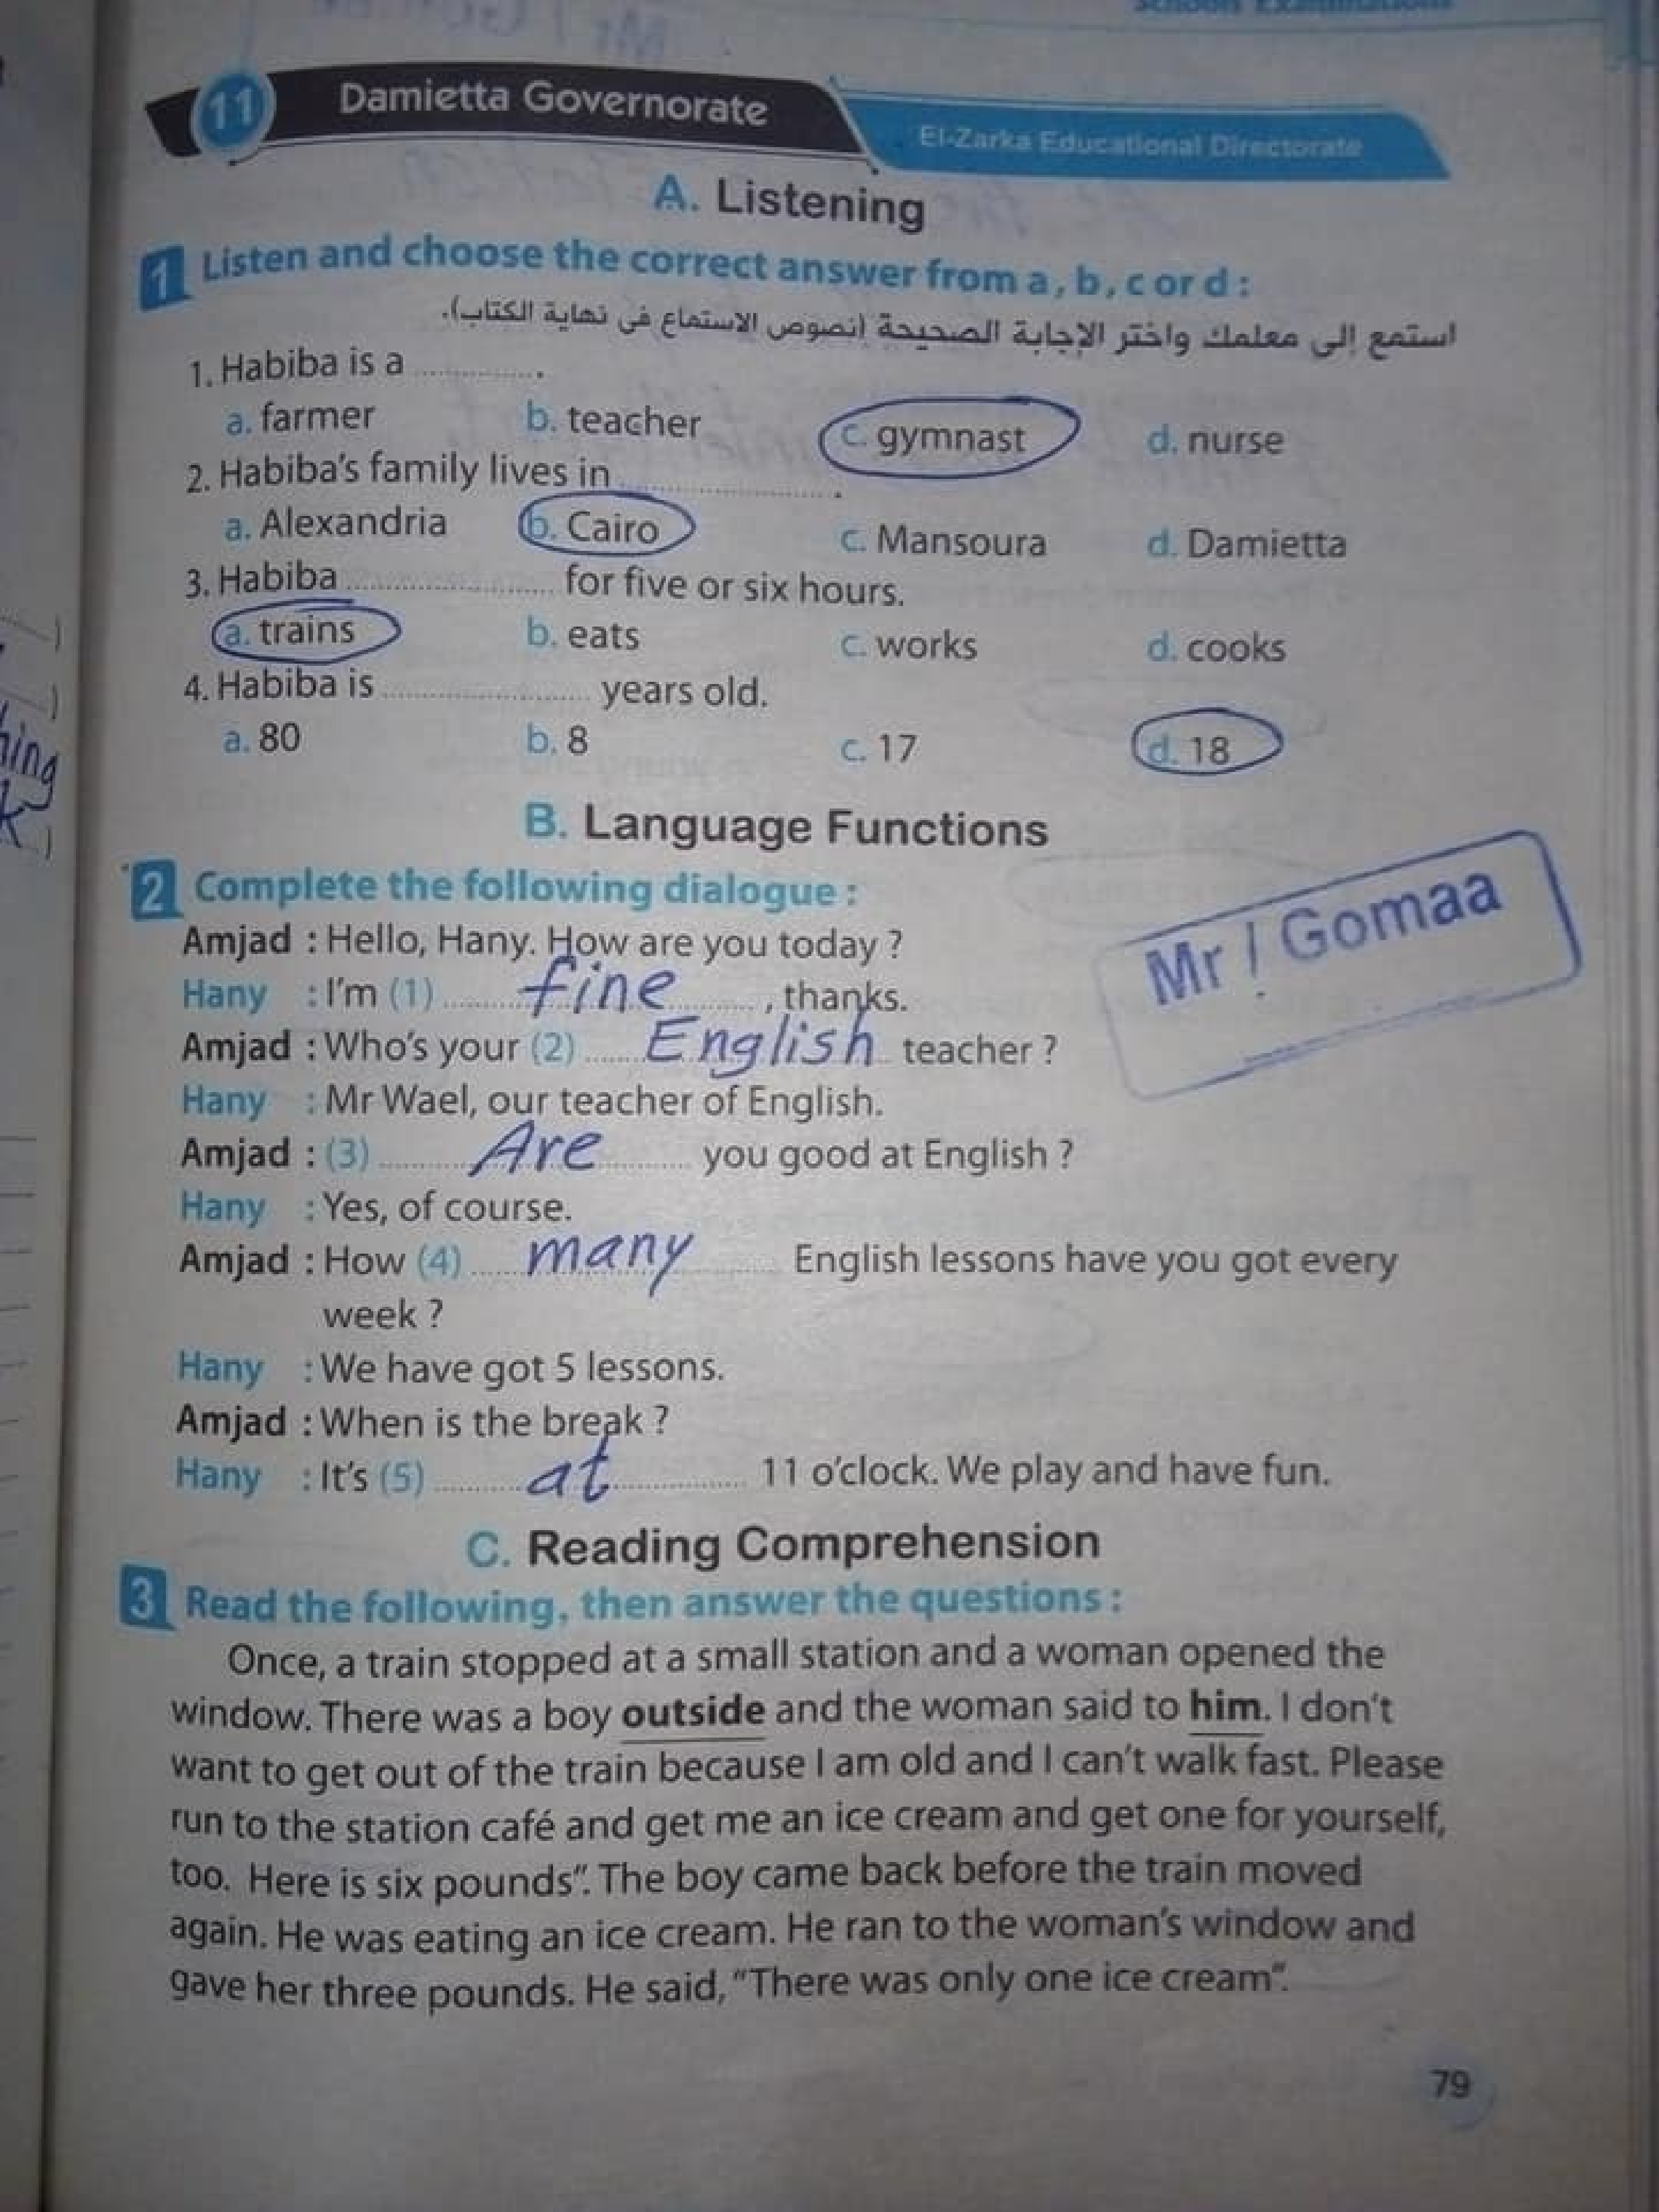 11 Damietta Governorate El-Zarka Educational Directorate
A. Listening
1 Listen and choose the correct answer from a, b, c or d :
استمع إلى معلمك واختر الإجابة الصحيحة (نصوص الاستماع فى نهاية الكتاب).
1. Habiba is a ............. .
a. farmer b. teacher c. gymnast d. nurse
2. Habiba's family lives in ......................... .
a. Alexandria b. Cairo c. Mansoura d. Damietta
3. Habiba ......................... for five or six hours.
a. trains b. eats c. works d. cooks
4. Habiba is ......................... years old.
a. 80 b. 8 c. 17 d. 18
B. Language Functions
2 Complete the following dialogue :
Mr / Gomaa
Amjad : Hello, Hany. How are you today ?
Hany : I'm (1) fine , thanks.
Amjad : Who's your (2) English teacher ?
Hany : Mr Wael, our teacher of English.
Amjad : (3) Are you good at English ?
Hany : Yes, of course.
Amjad : How (4) many English lessons have you got every
week ?
Hany : We have got 5 lessons.
Amjad : When is the break ?
Hany : It's (5) at 11 o'clock. We play and have fun.
C. Reading Comprehension
3 Read the following, then answer the questions :
Once, a train stopped at a small station and a woman opened the
window. There was a boy outside and the woman said to him. I don't
want to get out of the train because I am old and I can't walk fast. Please
run to the station café and get me an ice cream and get one for yourself,
too. Here is six pounds". The boy came back before the train moved
again. He was eating an ice cream. He ran to the woman's window and
gave her three pounds. He said, "There was only one ice cream".
79